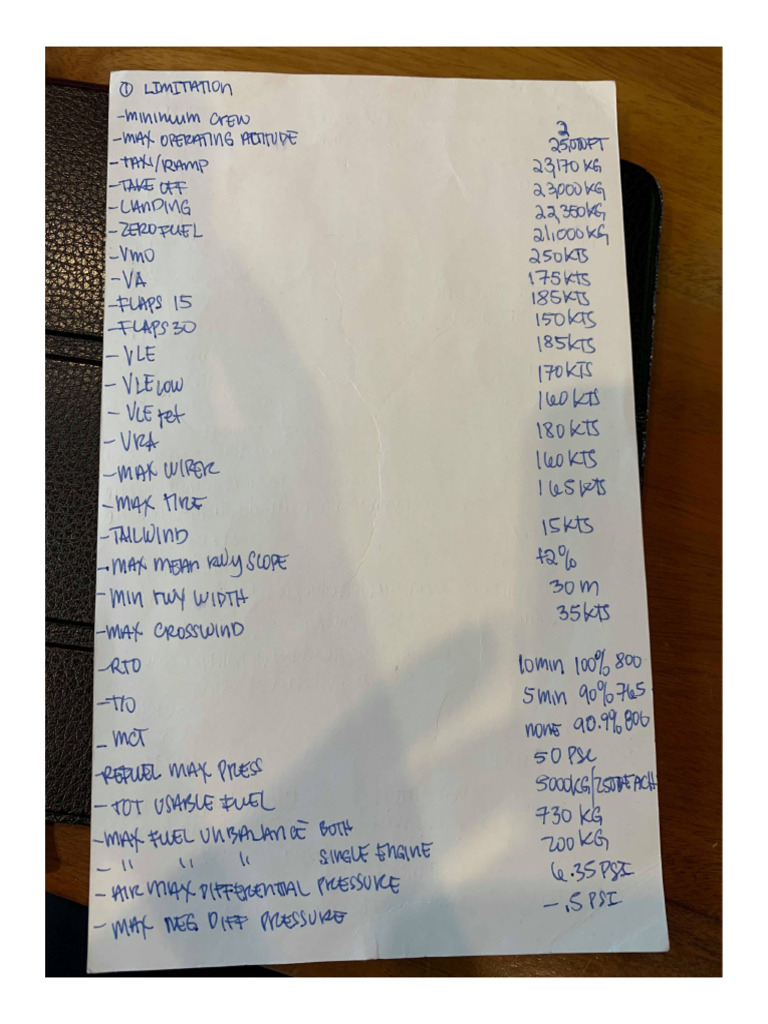 ① LIMITATION
-minimum crew 2
-MAX OPERATING ALTITUDE 25,000FT
-TAXI/RAMP 23,170 KG
-TAKE OFF 23,000KG
-LANDING 22,350KG
-ZERO FUEL 21,000KG
-Vmo 250KTS
-VA 175KTS
-FLAPS 15 185KTS
-FLAPS 30 150KTS
- VLE 185KTS
- VLE LOW 170KTS
- VLE ret 160KTS
- VRA 180KTS
- MAX WIPER 160KTS
- MAX TIRE 165KTS
-TAILWIND 15KTS
-MAX MEAN RWY SLOPE +2%
- MIN RWY WIDTH 30m
-MAX CROSSWIND 35KTS
-RTO 10min 100% 800
-T/O 5min 90% 765
- MCT none 90.9% 800
-REFUEL MAX PRESS 50 PSI
- TOT USABLE FUEL 5000KG/2500 EACH
-MAX FUEL UNBALANCE BOTH 730 KG
- " " " SINGLE ENGINE 200KG
- AIR MAX DIFFERENTIAL PRESSURE 6.35PSI
- MAX NEG DIFF PRESSURE -.5PSI